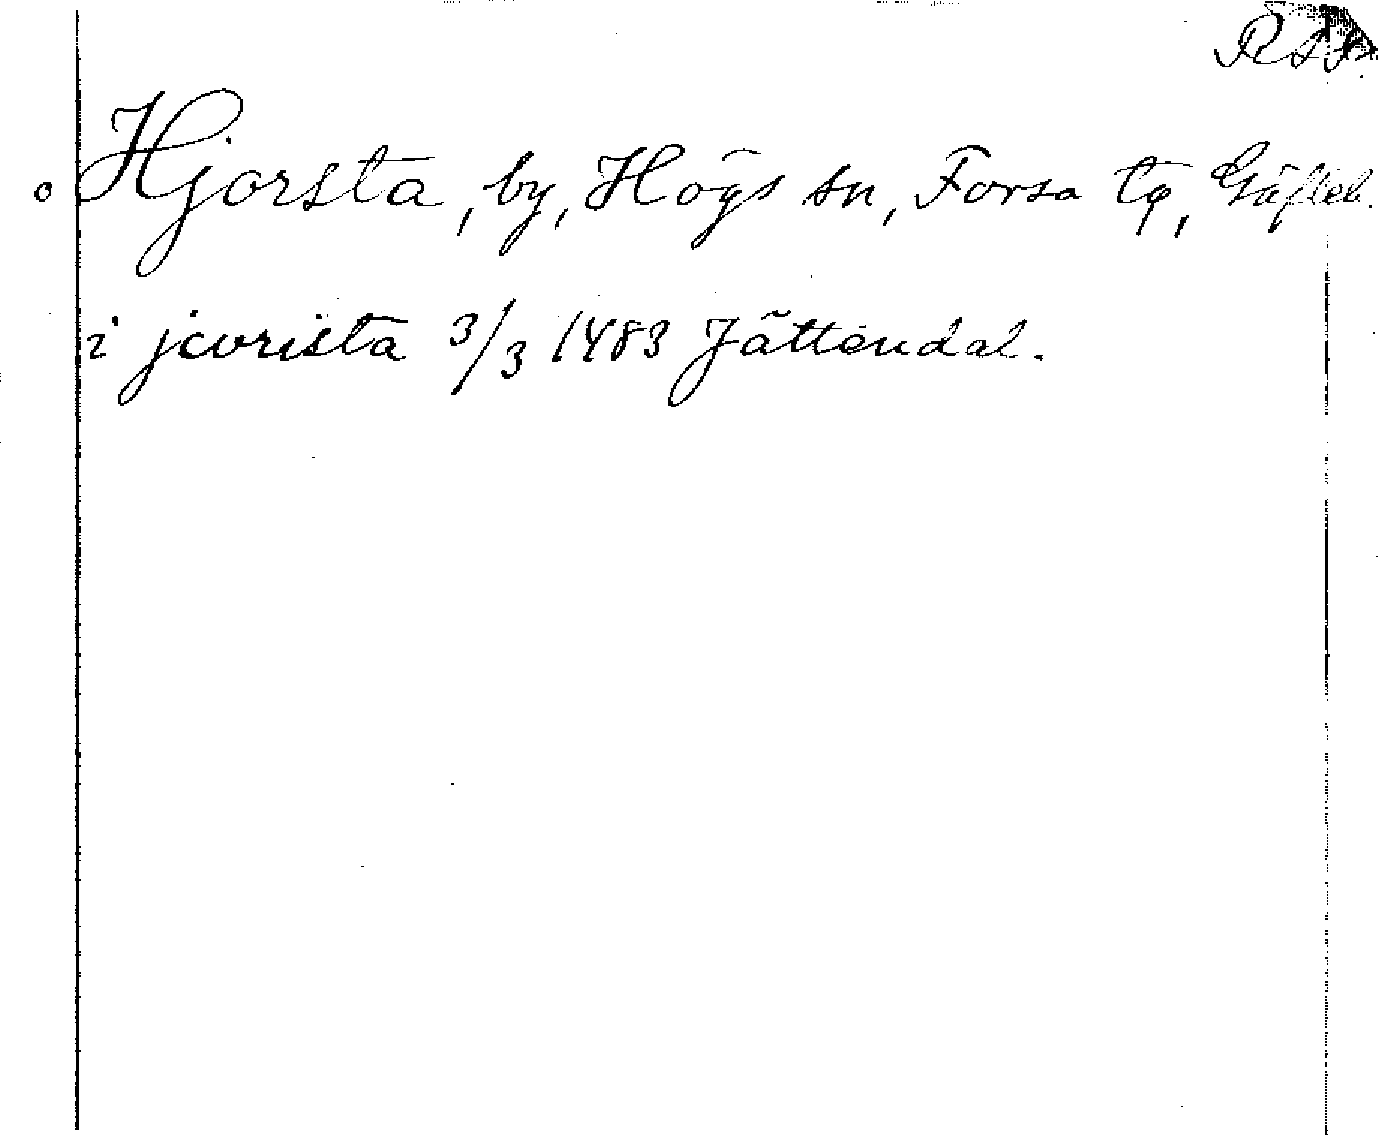 Hjorsta, by, Högs sn, Forsa tg, Gäfleb.
i jcvrista 3/3 1483 Jättendal.